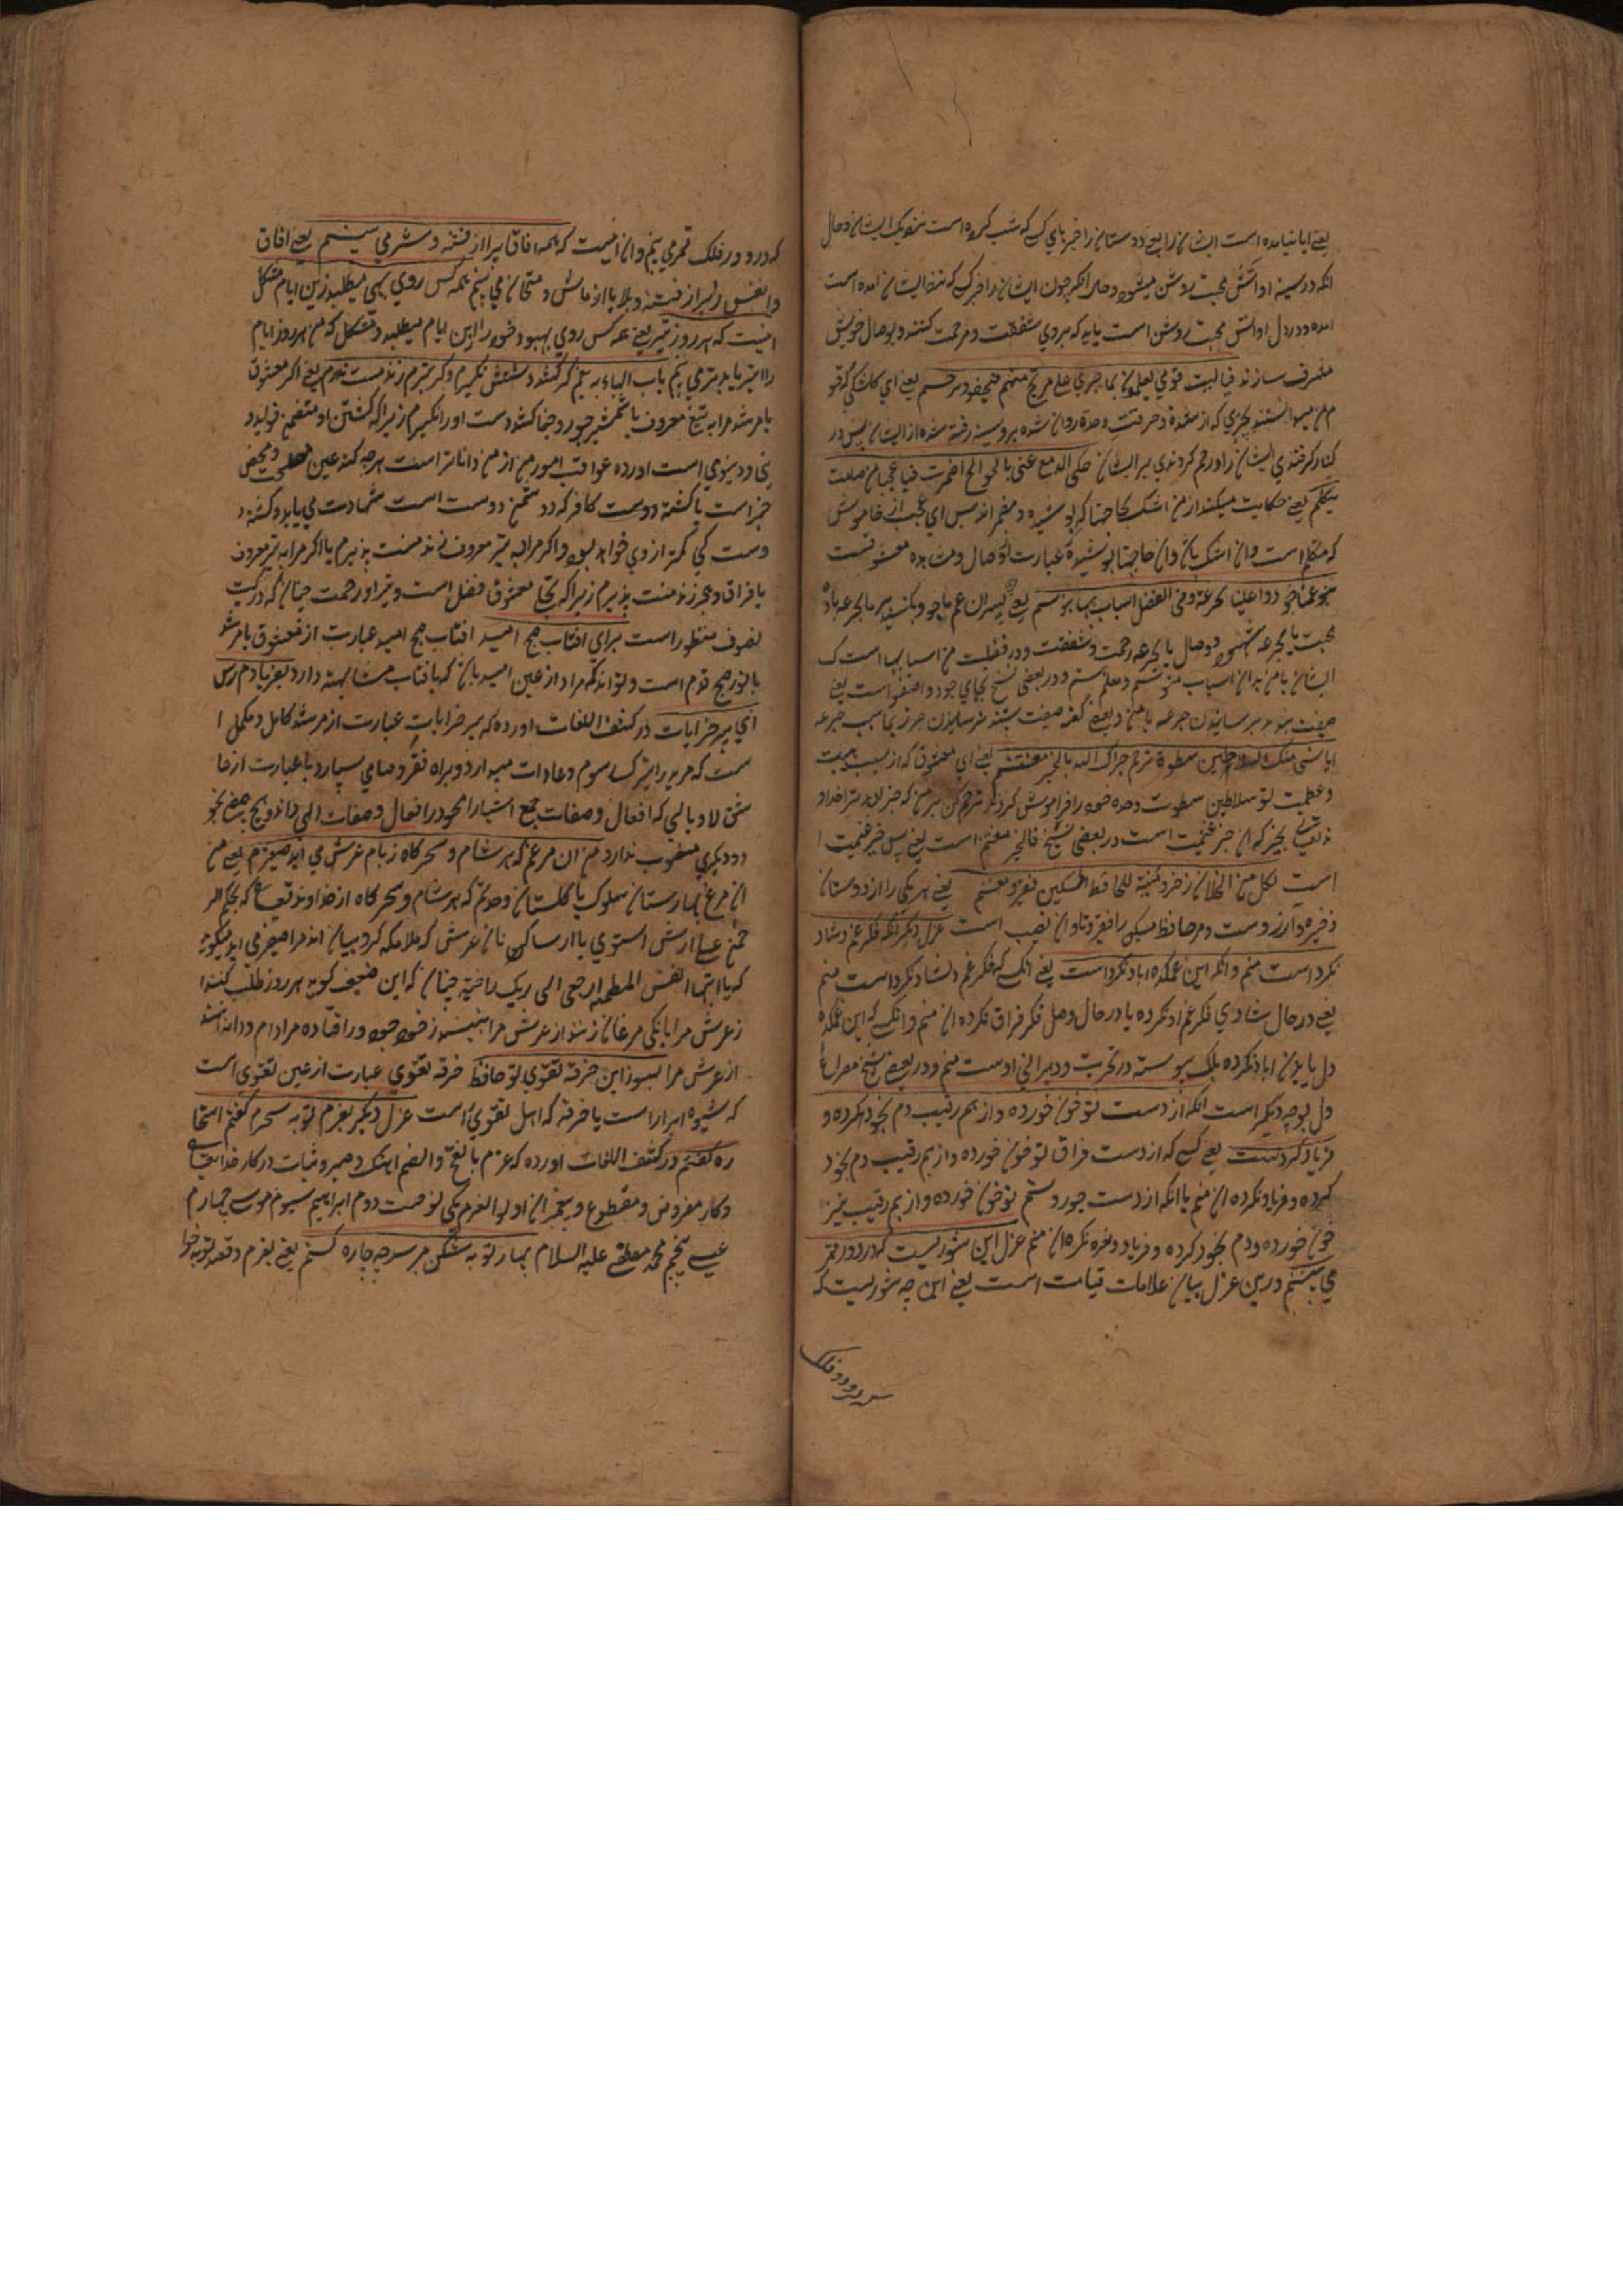 یعنی ایا نیامده است ایشان را یعنی دوستان را خبر بای کسی که شب کرده است نزدیک ایشان و حال
انکه در سینه او اتش محبت روشن میشود و حال انکه چون ایشان را خبر کسی که نزد ایشان امده است
امده و در دل او اتش محبت روشن است باید که بروی شفقت و مرحمت کنند و بوصال خویش
مشرف سازند فیا لیت قومی یعلمون بما جری علی مرتج منهم فیعفو و یرحم یعنی ای کاشکی که قو
م من میدانستند بچیزی که از
کنار گرفتندی ایشان را و رحم کردندی بر ایشان حکی الدمع عنی ما الجوانح اضمرت فیا عجبا من صامت
یتکلم یعنی حکایت میکند از من اشک انچنانکه پوشیده و مضمر اند پس ای عجب از خاموش
که متکلم است و ان اشک باش و ان حاجتها پوشیده عبارت از وصال و مشاهده معشوقست
بنو عمنا جودوا علینا بجرعة و فی الفضل اسباب بها یتوسم یعنی ای پسران عم ما جود بکنید بر ما بجرعه باده
محبت یا بجرعه شهود و وصال یا بجرعه رحمت و شفقت و در فضیلت من اسبابها است که
ایشان با من بدان اسباب و در بعضی نسخ بجای جودوا است یعنی
ایا من
و عظمت تو سلاطین سطوت و خود را فراموش کردند ترحم کن بر من که جزای دهد ترا خداوند
تعالی بخیر که ان خیر غنیمت است در بعضی نسخ فالخیر مغنم است یعنی پس خیر غنیمت ا
است لکل من الخلان ذخر و نعمة و للحافظ المسکین فقر و مغرم یعنی هر یکی را از دوستان
ذخیره و ارزوست و مر حافظ مسکین را فقیر و تاوان نصیب است غزل دیگر انکه فکر غم دلشاد
نکرداست منم و انکه این غمکده اباد نکرداست یعنی انکسی که فکر غم دلشاد نکرداست منم
یعنی در حال شادی فکر غم او نکرده یا در حال وصل فکر فراق نکرده ان منم و انکسی که این غمکده
دل یا بدن اباد نکرده بلکه پیوسته در تخریب و ویرانی اوست منم و در بعضی نسخ مصراع
دل بوجه دیگر است انکه از دست تو خون خورده و از بیم رقیب دم بخود کرده و
فریاد نکردست یعنی کسی که از دست فراق تو خون خورده و از بیم رقیب دم بخود
کرده و فریاد نکرده ان منم یا انکه از دست جور و ستم تو خون خورده و از بیم رقیب نیز
خون خورده و دم بخود کرده و فریاد و نعره نکرده ان منم غزل این چه شوریست که در دور قمر
می بینم درین غزل بیان علامات قیامت است یعنی این چه شوریست که
در دور فلک
که در دور فلک قمر می بینم و ان اینست که همه افاق پر از فتنه و شر می بینم یعنی افاق
و انفس را پر از فتنه و بلا یا ازمایش و امتحان می بینم همه کس روی بهی میطلبد زین ایام مشکل
اینست که هر روز بتر یعنی همه کس روی بهبود خود را ازین ایام میطلبد و مشکل که من هر روز ایام
را بتر یا بدتر می بینم باب الباء به تیغم گر کشد دستش نگیرم وگر تیرم زند منت پذیرم یعنی اگر معشوق
یا مرشد مرا به تیغ معروف یا شمشیر جور و جفا کشد دست او را نگیرم زیرا که کشتن او متضمن فواید
دینی و دنیوی است اورده عواقب امور من از من داناتر است هرچه کند عین مصلحت و محض
خیر است یا کشته دوست کافر که دشمن دوست است شهادت می یابد و کشته د
وست کی کمتر از وی خواهد بود و اگر مرا به تیر معروف زند منت پذیرم یا اگر مرا به تیر معروف
یا فراق و هجر زند منت پذیرم زیرا که معشوق فضل است و تیر او رحمت چنان که در کتب
تصوف منظور است برای افتاب صبح امید افتاب صبح امید عبارت از معشوق یا مرشد
یا نور صبح قدم است و تواند که مراد از عین امید باشد که با افتاب مشابهت دارد بفریادم رس
ای پیر خرابات در کشف اللغات اورده که پیر خرابات عبارت از مرشد کامل و مکمل ا
ست که مرید را بترک رسوم و عادات میدارد و براه فقر و فنا می سپارد یا عبارت از عا
شق لاوبالی که افعال و صفات جمیع اشیا را محو در افعال و صفات الهی داند و هیچ صفتی بخو
د و دیگری منسوب ندارد من ان مرغم که هر شام و سحرگاه ز بام عرش می اید صفیرم یعنی من
ان مرغ بهارستان سلوک یا گلستان وحدتم که هر شام و سحرگاه از خداوند تعالی که بحکم الر
حمن علی العرش استوی یا از ساکنان عرش که ملائکه کروبیان اند مرا صفیری اید میگوید
که یا ایتها النفس المطمئنه ارجعی الی ربک راضیة چنان که این ضعیف گوید هر روز طلب کنند ا
ز عرش مرا بانگی مرغان زنند از عرش مرا
از عرش مرا بسوز این خرقه تقوی تو حافظ خرقه تقوی عبارت از عین تقوی است
که شیوه ابرار است یا خرقه که اهل تقوی است غزل دیگر بعزم توبه سحر گفتم استخا
ره کنم در کشف اللغات اورده که عزم بالفتح و الضم اهنگ و صبر و ثبات در کار خدایتعالی
و کار مفروض و مقطوع و پیغمبران اولو العزم یکی نوحست دوم ابراهیم سیوم موسی چهارم
عیسی پنجم محمد مصطفی علیه السلام بهار توبه شکن میرسد چه چاره کنم یعنی بعزم و قصد توبه خوا